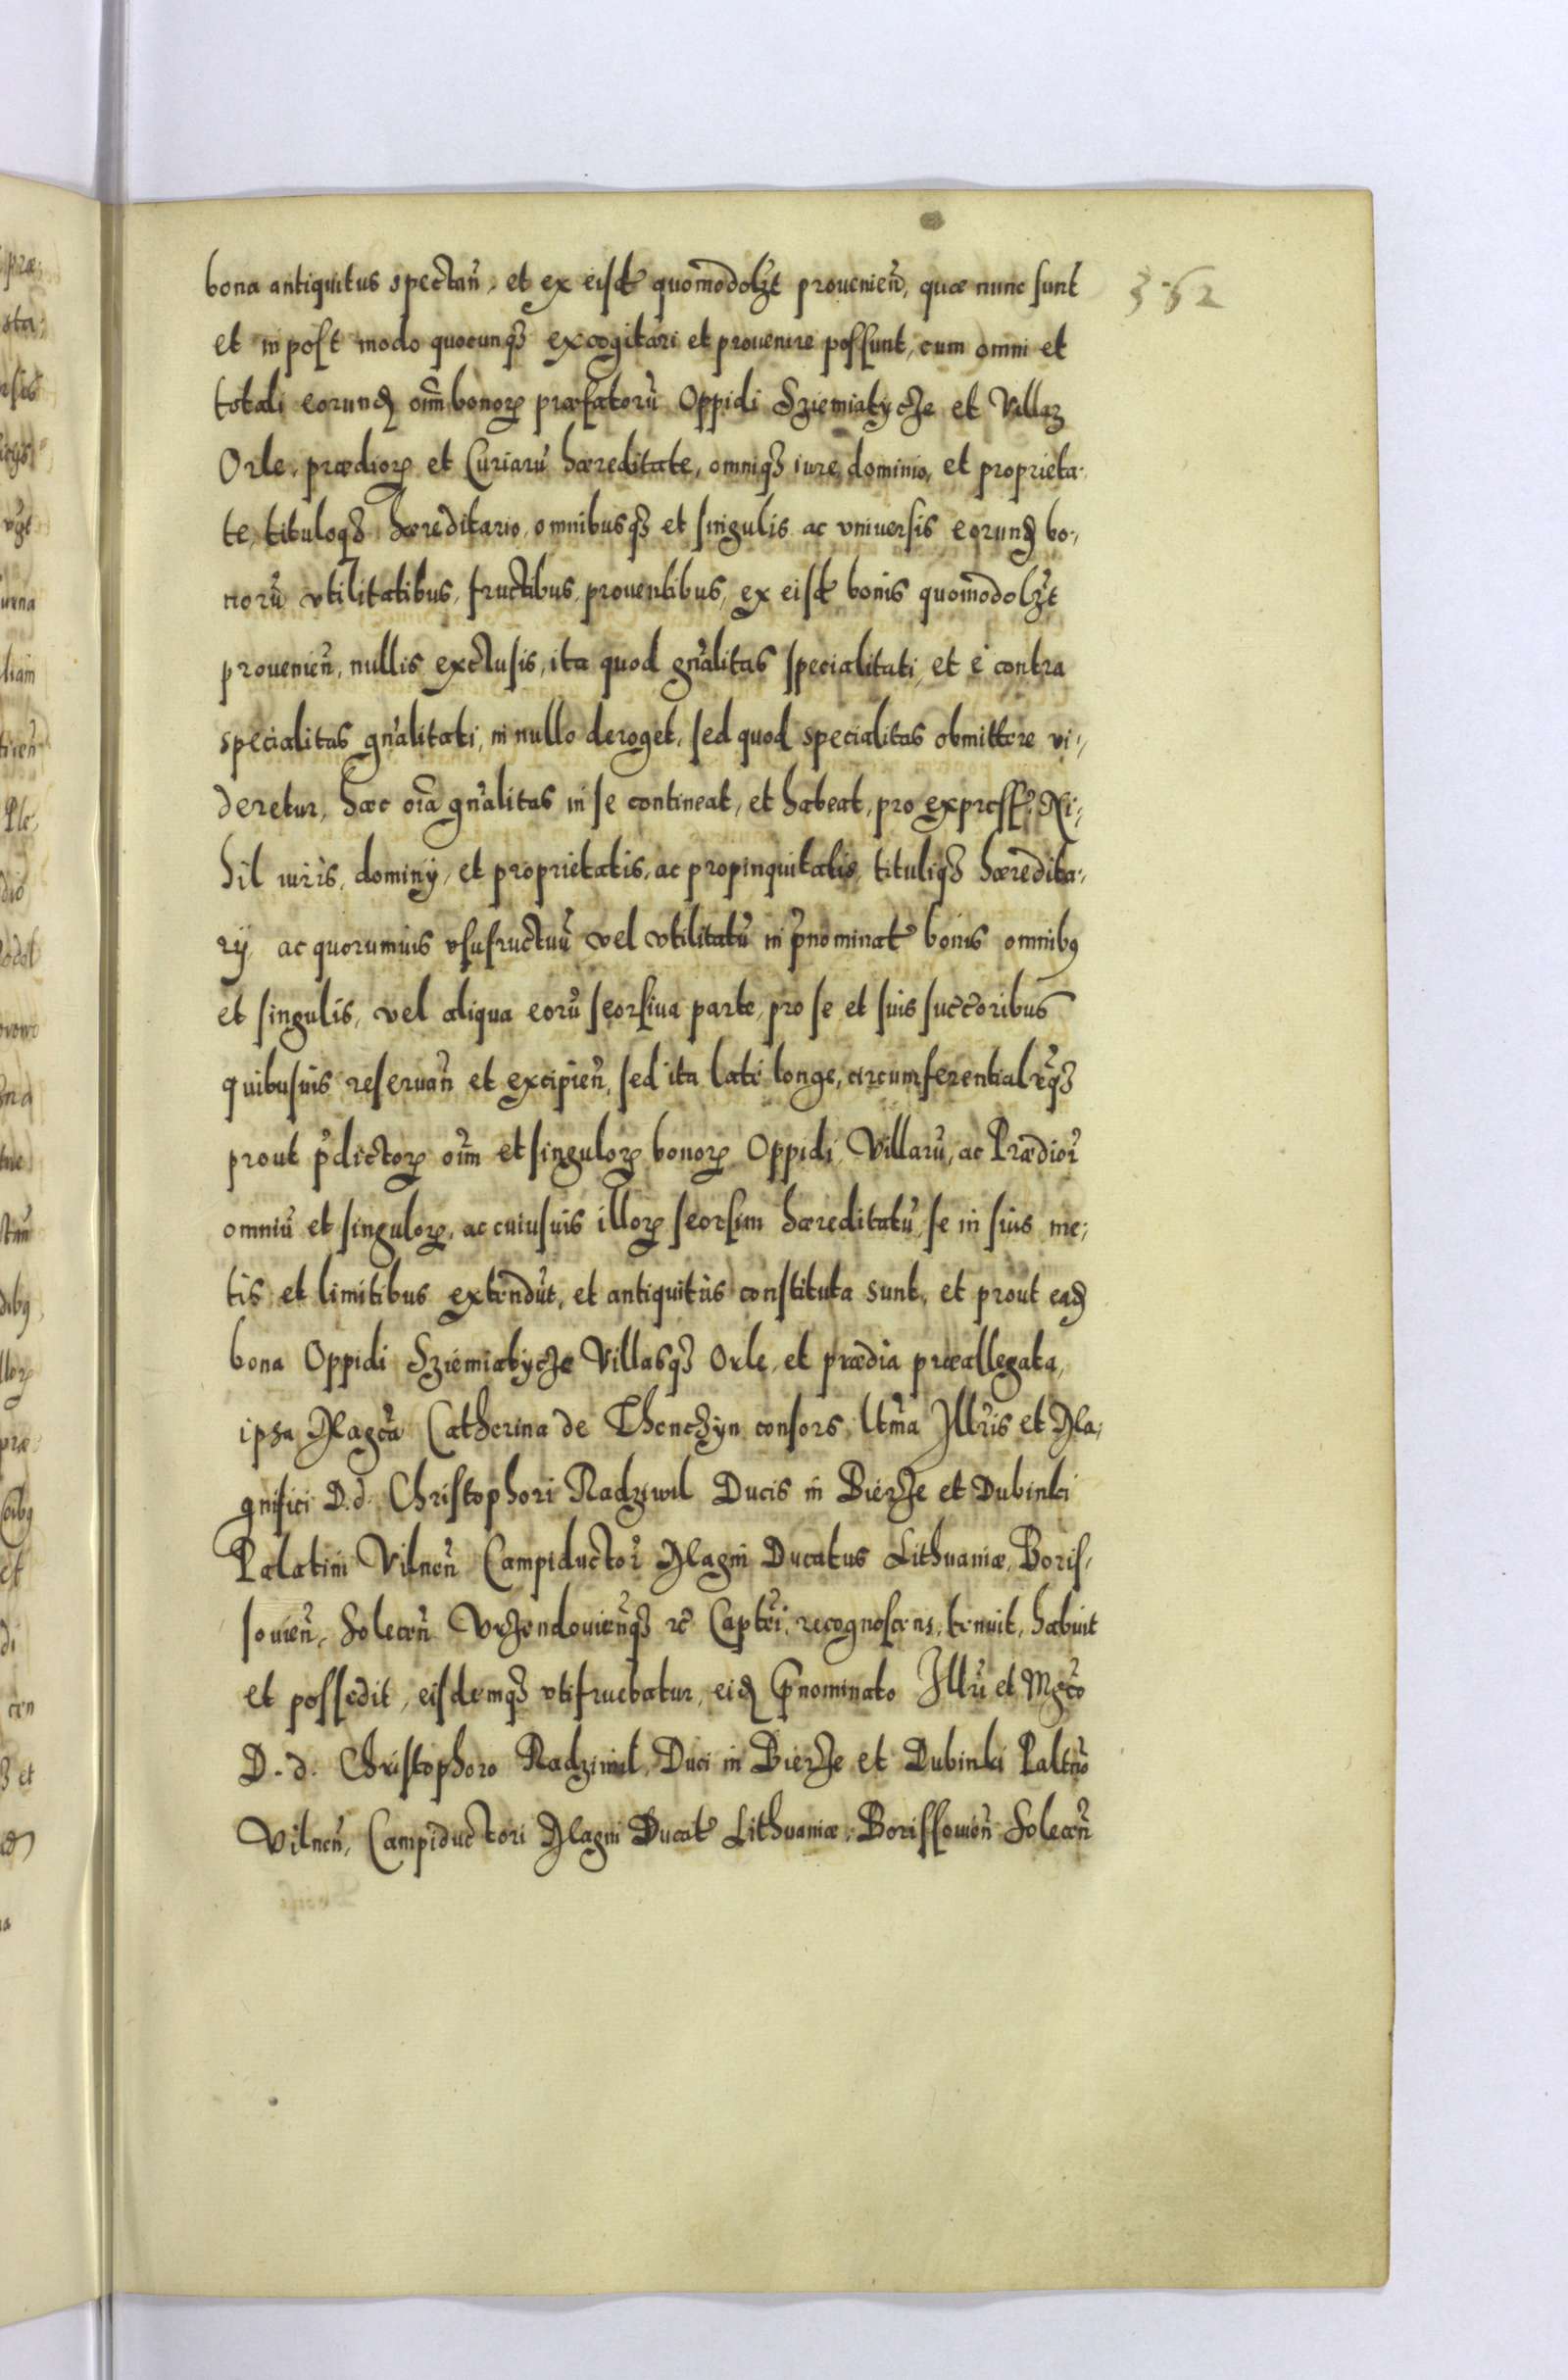 bona antiquitus spectañ, et ex eisd quomodolzt prouenieñ, quæ nunc sunt
352
et in post modo quocunqʒ excogitari et prouenire possunt, cum omni et
totali eorund oi͞m bonoꝝ præfatorũ Oppidi Sziemiatycze et Villaꝝ
Orle, prædioꝝ et Curiarũ hæreditate, omniqʒ iure dominio, et proprieta-
te, tituloqʒ hæreditario, omnibusqʒ et singulis ac vniuersis eorund bo-
norũ vtilitatibus, fructibus, prouentibus, ex eisd bonis quomodolzt
prouenieñ, nullis exclusis, ita quod gñalitas specialitati, et è contra
specialitas gñalitati, in nullo deroget, sed quod specialitas obmittere vi-
deretur, hæc oi͞a gñalitas in se contineat, et habeat, pro express: Ni-
hil iuris, dominij, et proprietatis, ac propinquitatis, tituliqʒ hæredita-
rij, ac quorumuis vsufructuũ vel vtilitatũ in p̃nominat bonis omnibꝰ
et singulis, vel aliqua eorũ seorsiua parte, pro se et suis succ̃oribus
quibusuis reseruañ et excipieñ, sed ita late longe, circumferentialr̃qʒ
prout p̃dictoꝝ oi͞m et singuloꝝ bonoꝝ Oppidi, Villarũ, ac Prædior̃
omniũ et singuloꝝ, ac cuiusuis illoꝝ seorsim hæreditatũ, se in suis me-
tis et limitibus extendũt, et antiquitùs constituta sunt, et prout ead
bona Oppidi Sziemiatycze Villasqʒ Orle, et prædia præallegata,
ipsa Magc̃a Catherina de Thenczyn consors ltm̃a Illr̃is et Ma-
gnifici D. d. Christophori Radziwil Ducis in Bierze et Dubinki
Palatini Vilneñ Campiductor̃ Magni Ducatus Lithuaniæ, Boris-
souieñ, Soleceñ Vrzendouieñqʒ ꝛc̃ Capt̃ei, recognoscens, tenuit, habuit
et possedit, eisdemqʒ vtifruebatur, eid p̃nominato Illr̃i et Mgc̃o
D. d. Christophoro Radziwil, Duci in Bierze et Dubinki Palt̃no
Vilneñ, Campiductori Magni Ducat Lithuaniæ, Borissouieñ Soleceñ